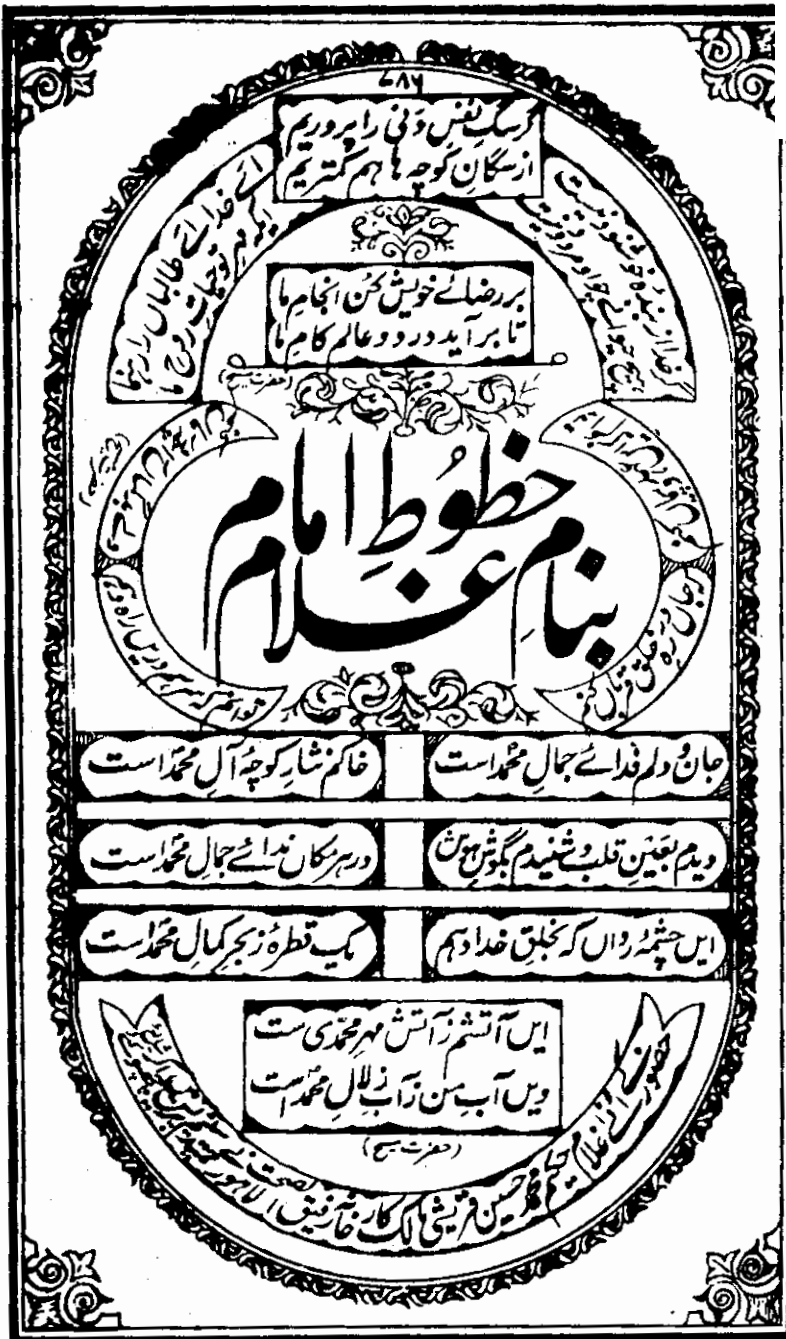 ۷۸۶
گر سگِ نفسِ دَنی را پروریم
از سگانِ کوچہ ہا ہم کمتریم
گر خدا از بندۂ خوشنود نیست
ہیچ حیوانے چو او مردود نیست
اے خدا اے طالباں را رہنما
ایکہ مہرِ تو حیاتِ روحِ ما
بر رضائے خویش کُن انجامِ ما
تا برآید در دو عالم کامِ ما
(حضرت مسیح)
خطوطِ امام
بنامِ غلام
جان و دلم فدائے جمالِ محمدؐ است
خاکم نثارِ کوچۂ آلِ محمدؐ است
دیدم بعینِ قلب و شنیدم بگوشِ ہوش
در ہر مکاں ندائے جمالِ محمدؐ است
ایں چشمۂ رواں کہ بخلقِ خدا دہم
یک قطرۂ ز بحرِ کمالِ محمدؐ است
ایں آتشم ز آتشِ مہرِ محمدی ست
ویں آبِ من ز آبِ زلالِ محمدؐ است
(حضرت مسیح)
حکیم محمد حسین قریشی مالک کارخانہ رفیق الصحت لاہور